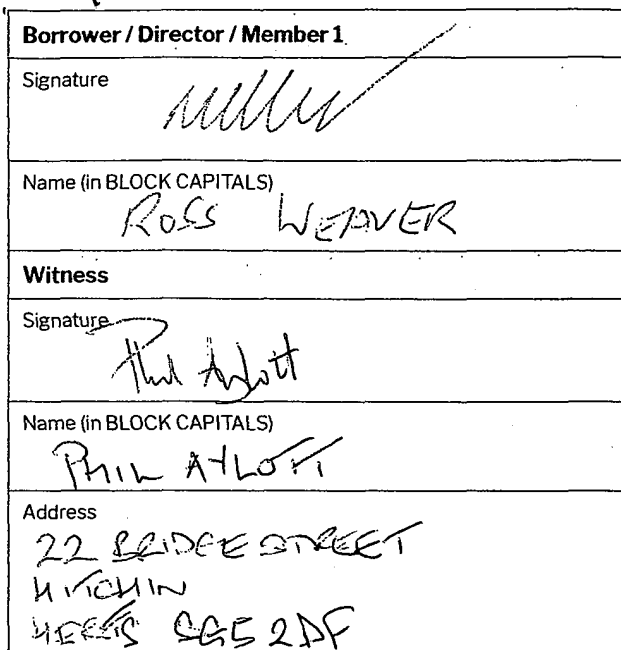 Borrower / Director / Member 1
Signature
Name (in BLOCK CAPITALS)
ROSS WEAVER
Witness
Signature
Phil Aylott
Name (in BLOCK CAPITALS)
PHIL AYLOTT
Address
22 BRIDGE STREET
HITCHIN
HERTS SG5 2DF